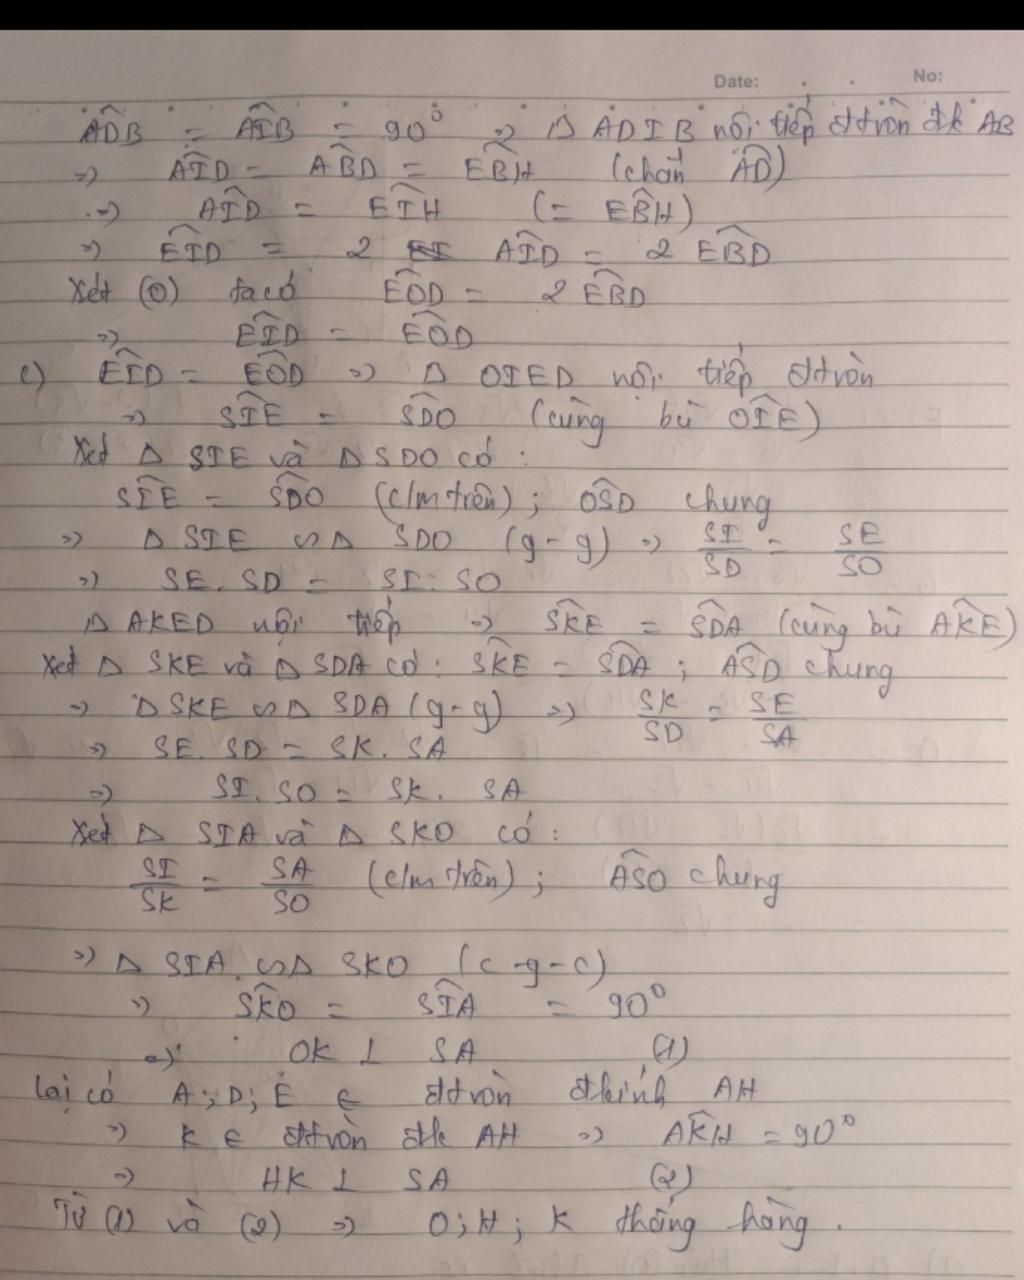 Date: . . No:
ADB^ = AIB^ = 90° => ◊ ADIB nội tiếp đtròn đk AB
=> AID^ = ABD^ = EBH^ (chắn AD^)
=> AID^ = EIH^ (= EBH^)
=> EID^ = 2 AID^ = 2 EBD^
Xét (O) ta có EOD^ = 2 EBD^
=> EID^ = EOD^
c) EID^ = EOD^ => ◊ OIED nội tiếp đtròn
=> SIE^ = SDO^ (cùng bù OIE^)
Xét Δ SIE và Δ SDO có :
SIE^ = SDO^ (c/m trên) ; OSD^ chung
=> Δ SIE ∽ Δ SDO (g-g) => SI/SD = SE/SO
=> SE. SD = SI. SO
◊ AKED nội tiếp => SKE^ = SDA^ (cùng bù AKE^)
Xét Δ SKE và Δ SDA có : SKE^ = SDA^ ; ASD^ chung
=> Δ SKE ∽ Δ SDA (g-g) => SK/SD = SE/SA
=> SE. SD = SK. SA
=> SI. SO = SK. SA
Xét Δ SIA và Δ SKO có :
SI/SK = SA/SO (c/m trên) ; ASO^ chung
=> Δ SIA ∽ Δ SKO (c-g-c)
=> SKO^ = SIA^ = 90°
=> OK ⊥ SA (1)
Lại có A ; D ; E ∈ đtròn đkính AH
=> K ∈ đtròn đk AH => AKH^ = 90°
=> HK ⊥ SA (2)
Từ (1) và (2) => O ; H ; K thẳng hàng .